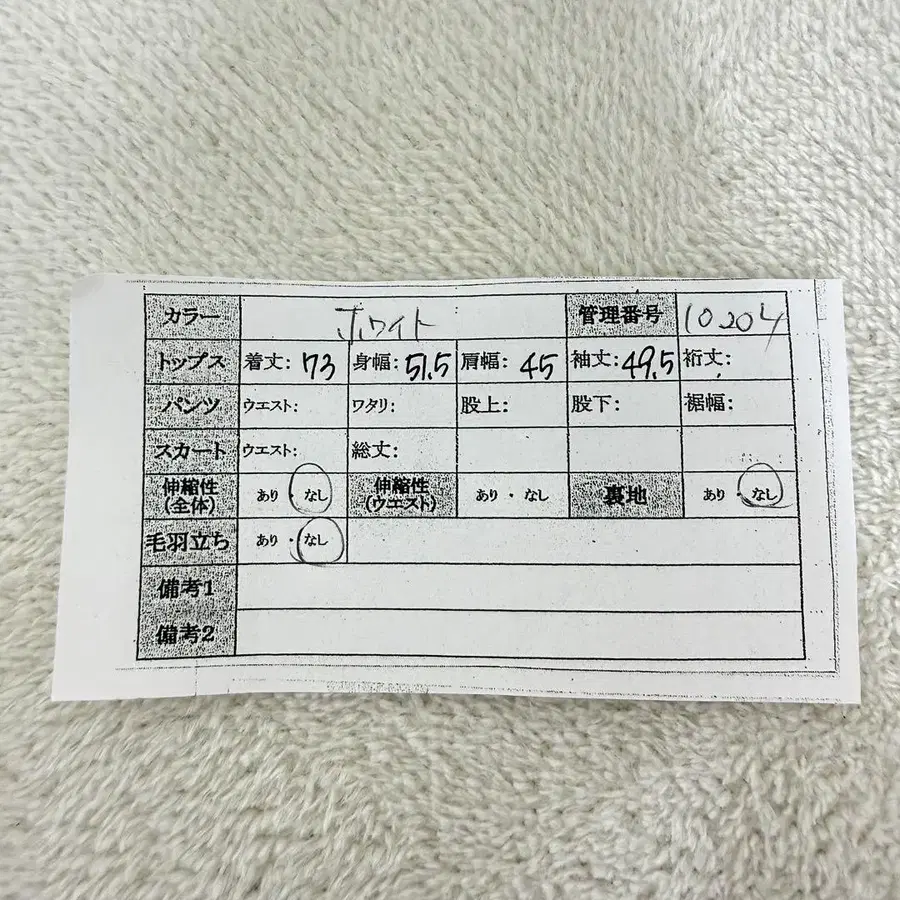 カラー ホワイト 管理番号 10204
トップス 着丈: 73 身幅: 51.5 肩幅: 45 袖丈: 49.5 裄丈:
パンツ ウエスト: ワタリ: 股上: 股下: 裾幅:
スカート ウエスト: 総丈:
伸縮性(全体) あり・なし 伸縮性(ウエスト) あり・なし 裏地 あり・なし
毛羽立ち あり・なし
備考1
備考2